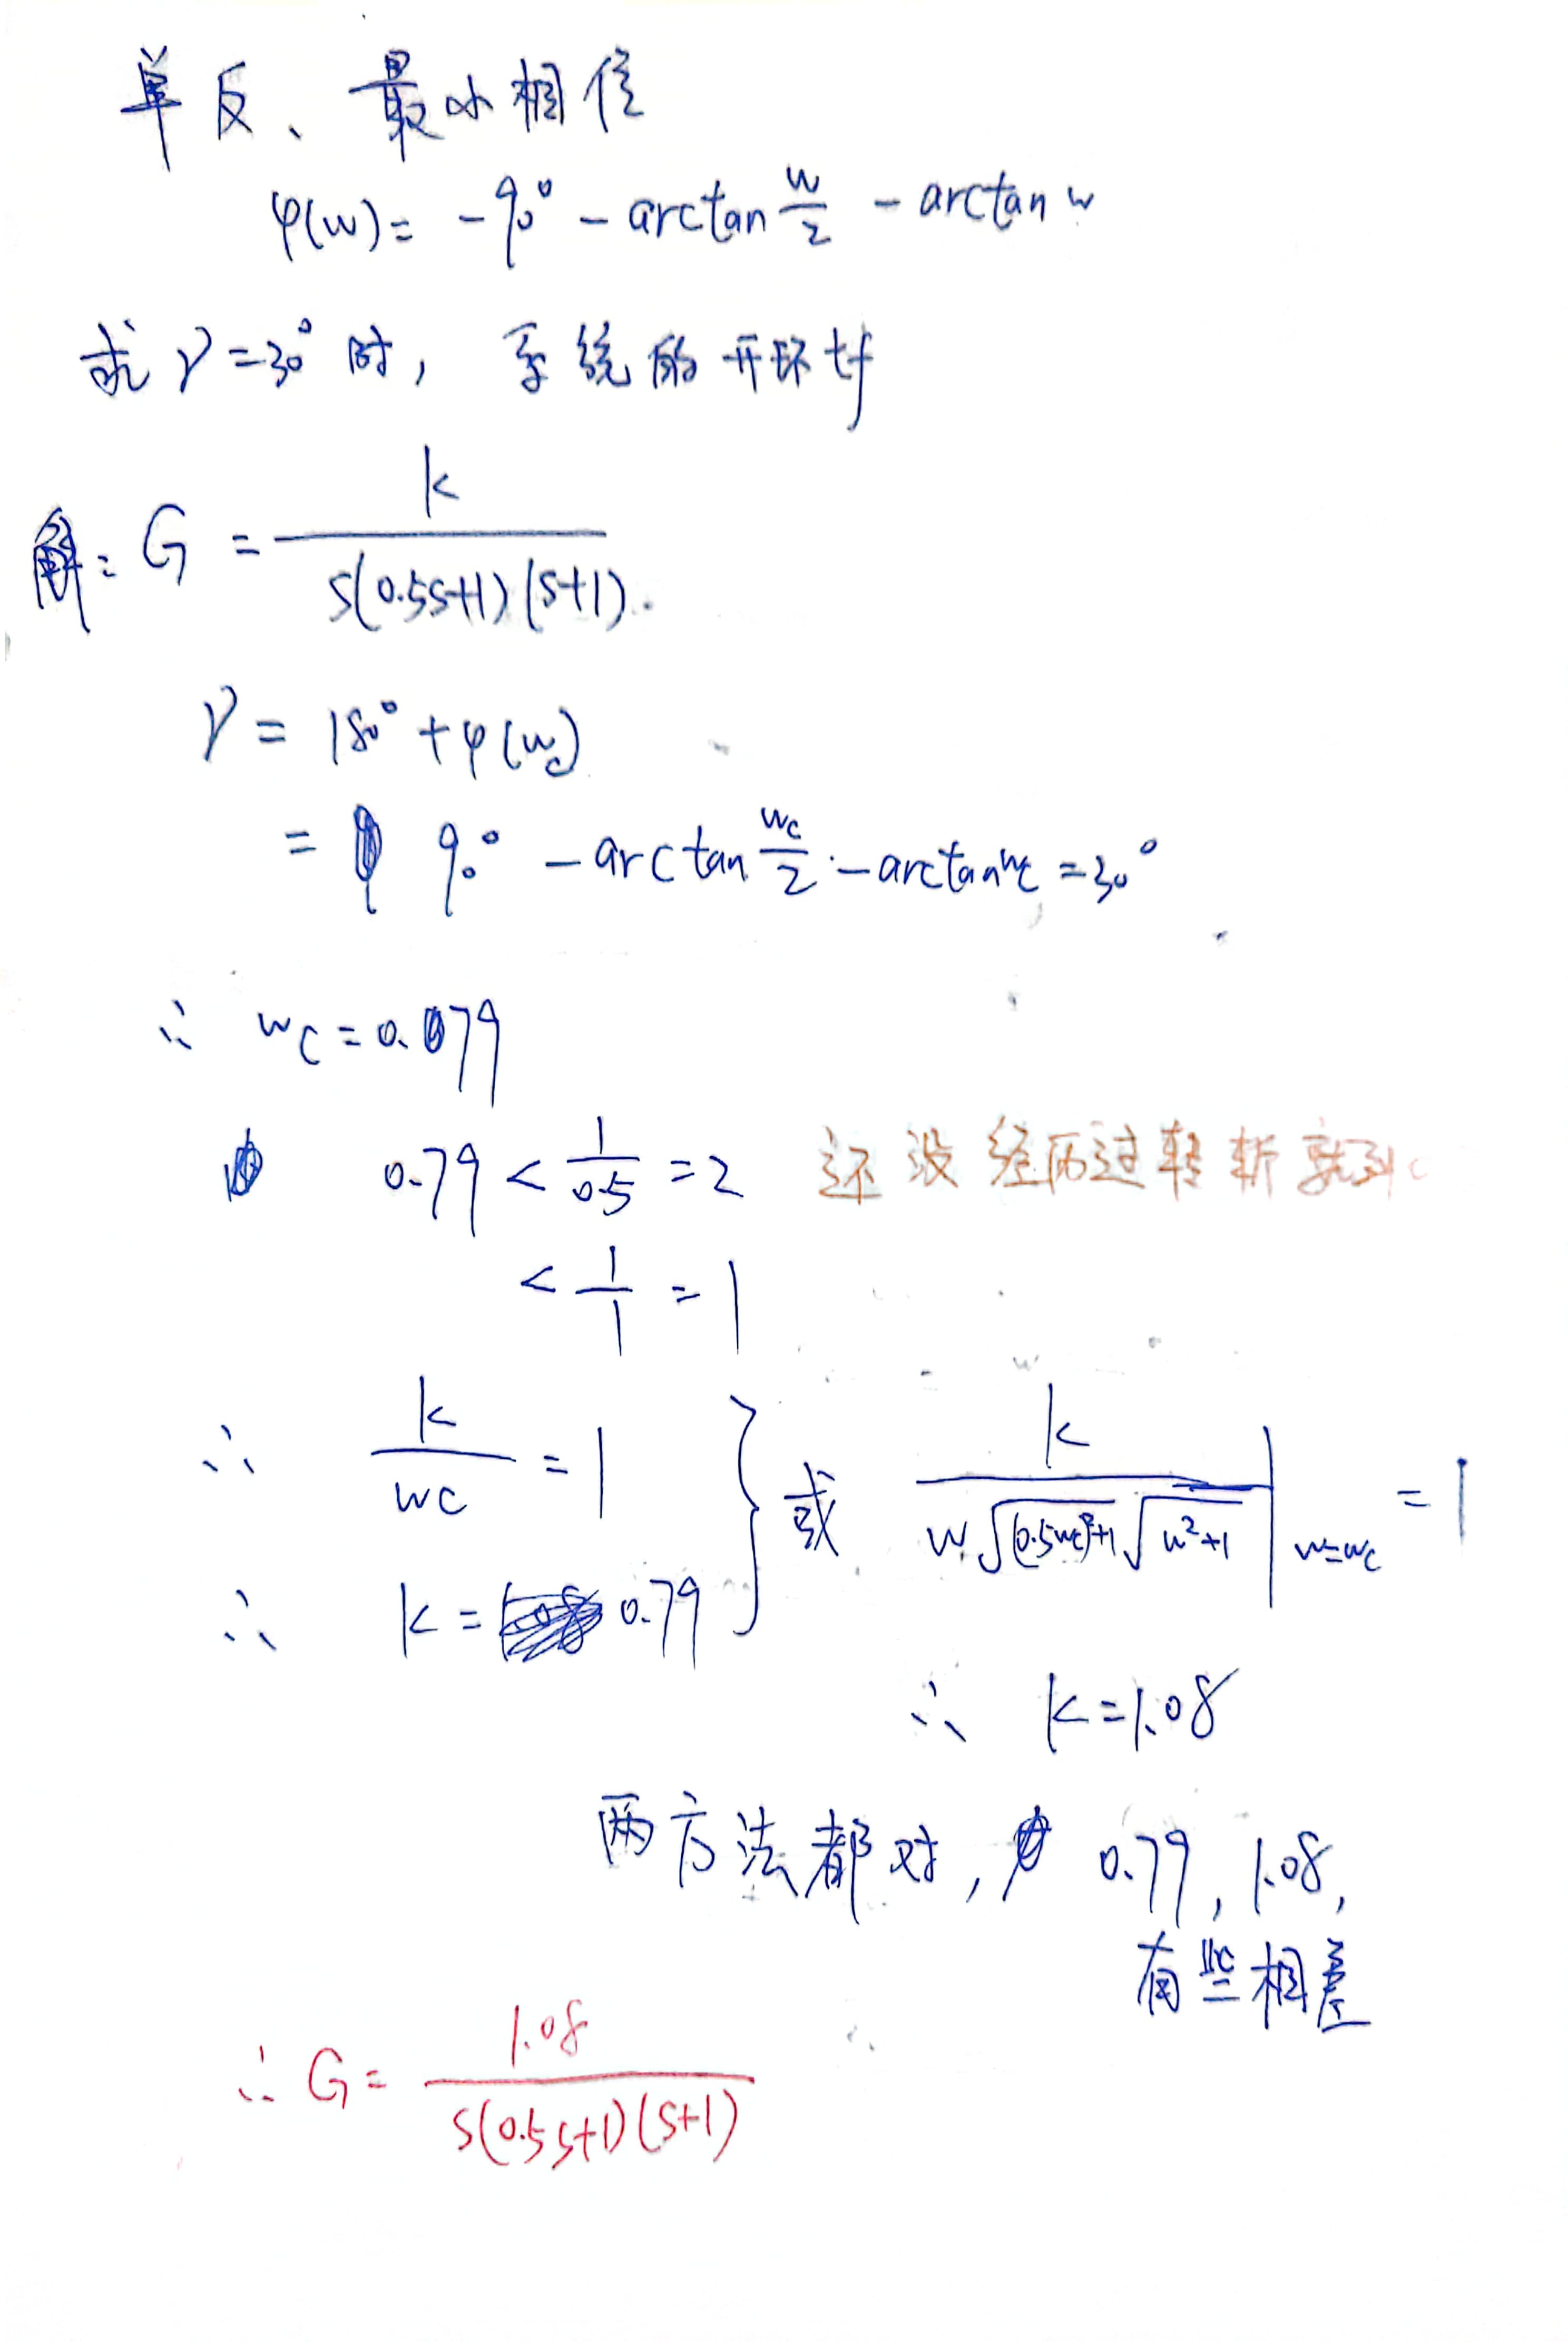 单反、最小相位
φ(w)= -90° - arctan w/2 - arctan w
求 γ=30° 时, 系统的开环tf
解: G = k / s(0.5s+1)(s+1).
γ = 180° + φ(wc)
= 90° - arctan wc/2 - arctan wc = 30°
∴ wc = 0.79
0.79 < 1/0.5 = 2 还没经历过转折就到
< 1/1 = 1
∴ k/wc = 1 } 或 k / w√(0.5wc)²+1 √w²+1 | w=wc = 1
∴ k = 0.79
∴ k = 1.08
两方法都对, 0.79, 1.08,
有些相差
∴ G = 1.08 / s(0.5s+1)(s+1)